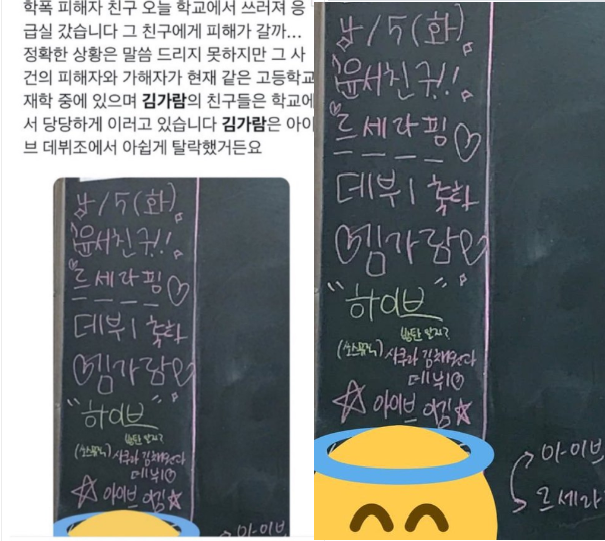 학폭 피해자 친구 오늘 학교에서 쓰러져 응
급실 갔습니다 그 친구에게 피해가 갈까...
정확한 상황은 말씀 드리지 못하지만 그 사
건의 피해자와 가해자가 현재 같은 고등학교
재학 중에 있으며 김가람의 친구들은 학교에
서 당당하게 이러고 있습니다 김가람은 아이
브 데뷔조에서 아쉽게 탈락했거든요
4/5(화)
윤서친구!!
르세라핌♡
데뷔 축하
♡김가람♡
"하이브"
방탄 알지?
(쏘스뮤직) 사쿠라 김채원보다
데뷔♡
☆ 아이브 이김 ★
아이브
4/5(화)
윤서친구!!
르세라핌♡
데뷔 축하
♡김가람♡
"하이브"
방탄 알지?
(쏘스뮤직) 사쿠라 김채원
데뷔♡
☆ 아이브 이김 ★
아이브
르세라